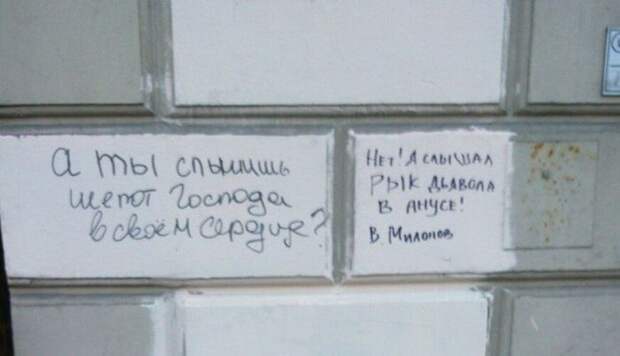 а ты слышишь
шепот Господа
в своём сердце?
НЕТ! Я СЛЫШАЛ
РЫК ДЬЯВОЛА
В АНУСЕ!
В. Милонов